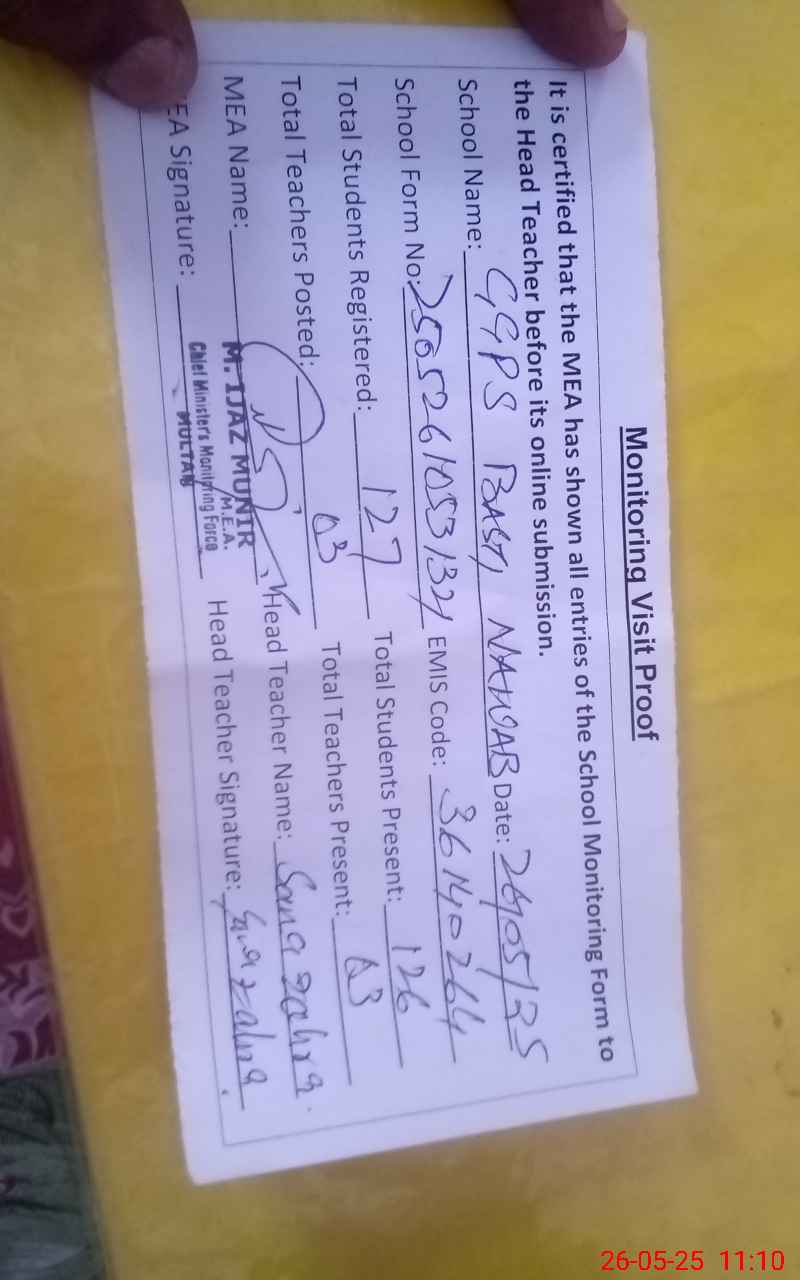 Monitoring Visit Proof
It is certified that the MEA has shown all entries of the School Monitoring Form to
the Head Teacher before its online submission.
School Name: GGPS BASTI NAWAB Date: 26/05/25
School Form No: EMIS Code: 36140264
Total Students Registered: 127 Total Students Present: 126
Total Teachers Posted: 03 Total Teachers Present: 03
MEA Name: Head Teacher Name: Sana zahra
M. IJAZ MUNIR
M.E.A.
EA Signature: Head Teacher Signature: Sana zahra
Chief Minister's Monitoring Force
MULTAN
26-05-25 11:10